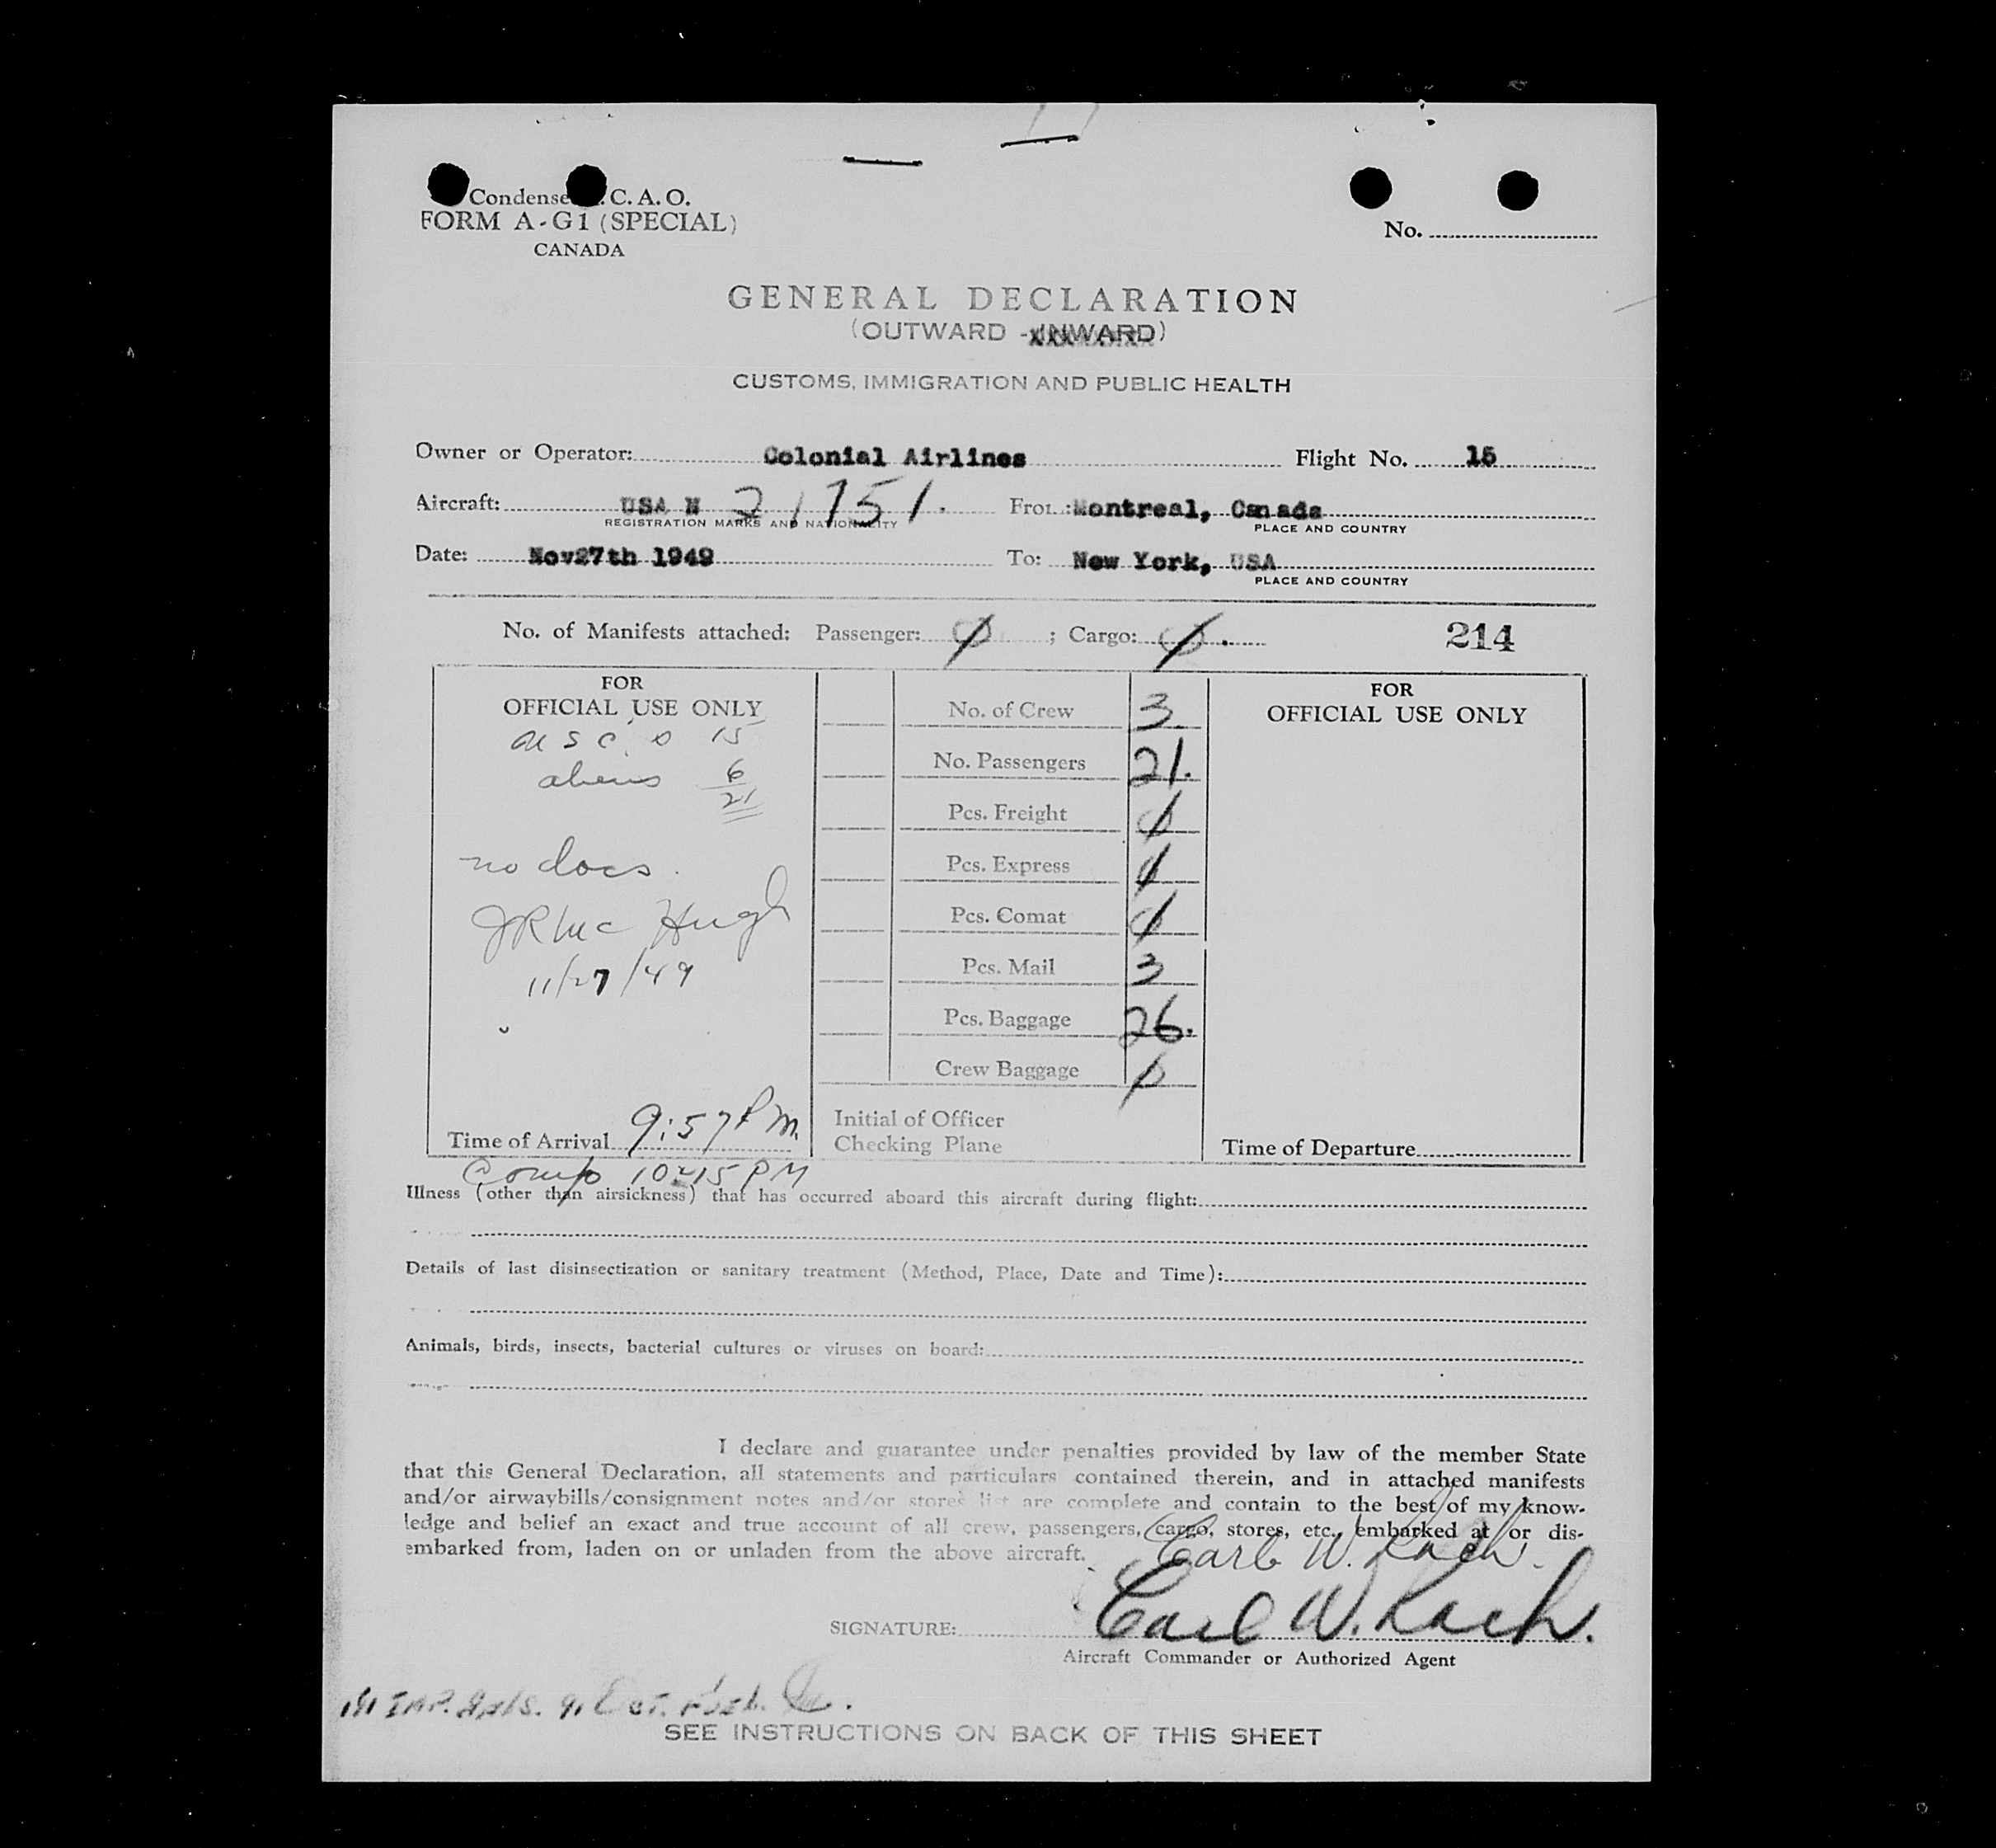 Condense C. A. O.
FORM A-G1 (SPECIAL)
CANADA
No.
GENERAL DECLARATION
(OUTWARD - INWARD)
CUSTOMS, IMMIGRATION AND PUBLIC HEALTH
Owner or Operator: Colonial Airlines Flight No. 15
Aircraft: USA N 21751. From: Montreal, Canada
REGISTRATION MARKS AND NATIONALITY PLACE AND COUNTRY
Date: Nov27th 1949 To: New York, USA
PLACE AND COUNTRY
No. of Manifests attached: Passenger: 0 ; Cargo: 0. 214
FOR
OFFICIAL USE ONLY
U S C. s 15
aliens 6
21
no docs.
JR McHugh
11/27/49
Time of Arrival 9:57 PM.
Comp 10:15 PM
No. of Crew 3
No. Passengers 21.
Pcs. Freight 0
Pcs. Express 0
Pcs. Comat 0
Pcs. Mail 3
Pcs. Baggage 26.
Crew Baggage 0
Initial of Officer
Checking Plane
FOR
OFFICIAL USE ONLY
Time of Departure
Illness (other than airsickness) that has occurred aboard this aircraft during flight:
Details of last disinsectization or sanitary treatment (Method, Place, Date and Time):
Animals, birds, insects, bacterial cultures or viruses on board:
I declare and guarantee under penalties provided by law of the member State
that this General Declaration, all statements and particulars contained therein, and in attached manifests
and/or airwaybills/consignment notes and/or stores list are complete and contain to the best of my know-
ledge and belief an exact and true account of all crew, passengers, cargo, stores, etc., embarked at or dis-
embarked from, laden on or unladen from the above aircraft.
Carl W. Rach.
SIGNATURE: Carl W. Rach.
Aircraft Commander or Authorized Agent
SEE INSTRUCTIONS ON BACK OF THIS SHEET